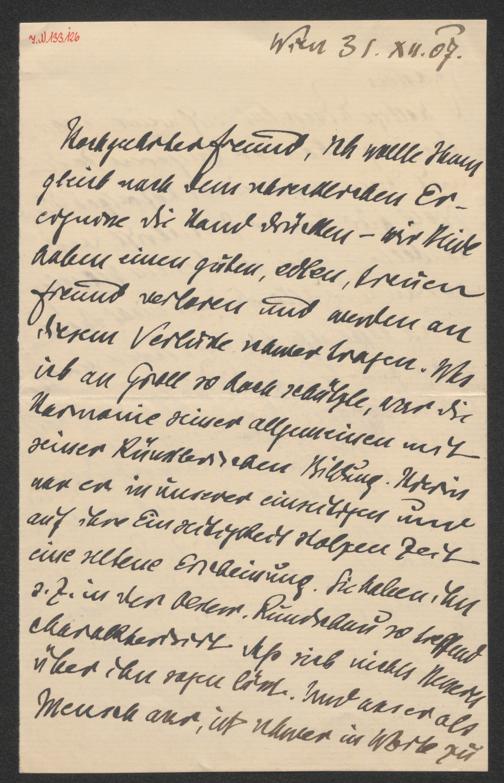 I.N.133.126
Wien 31. XII. 07.
Hochgeehrter Freund, ich wollte Ihnen
gleich nach dem schrecklichen Er-
eignisse die Hand drücken – wir Beide
haben einen guten, edlen, treuen
Freund verloren und werden an
diesem Verluste schwer tragen. Was
ich an Groll so hoch schätzte, war die
Harmonie seiner allgemeinen mit
seiner künstlerischen Bildung. Hierin
war er in unserer einseitigen und
auf ihre Einseitigkeit stolzen Zeit
eine seltene Erscheinung. Sie haben ihn
s. Z. in der Oesterr. Rundschau so treffend
charakterisirt daß sich nichts
über ihn sagen läßt. Und was er als
Mensch war, ist schwer in Worte zu